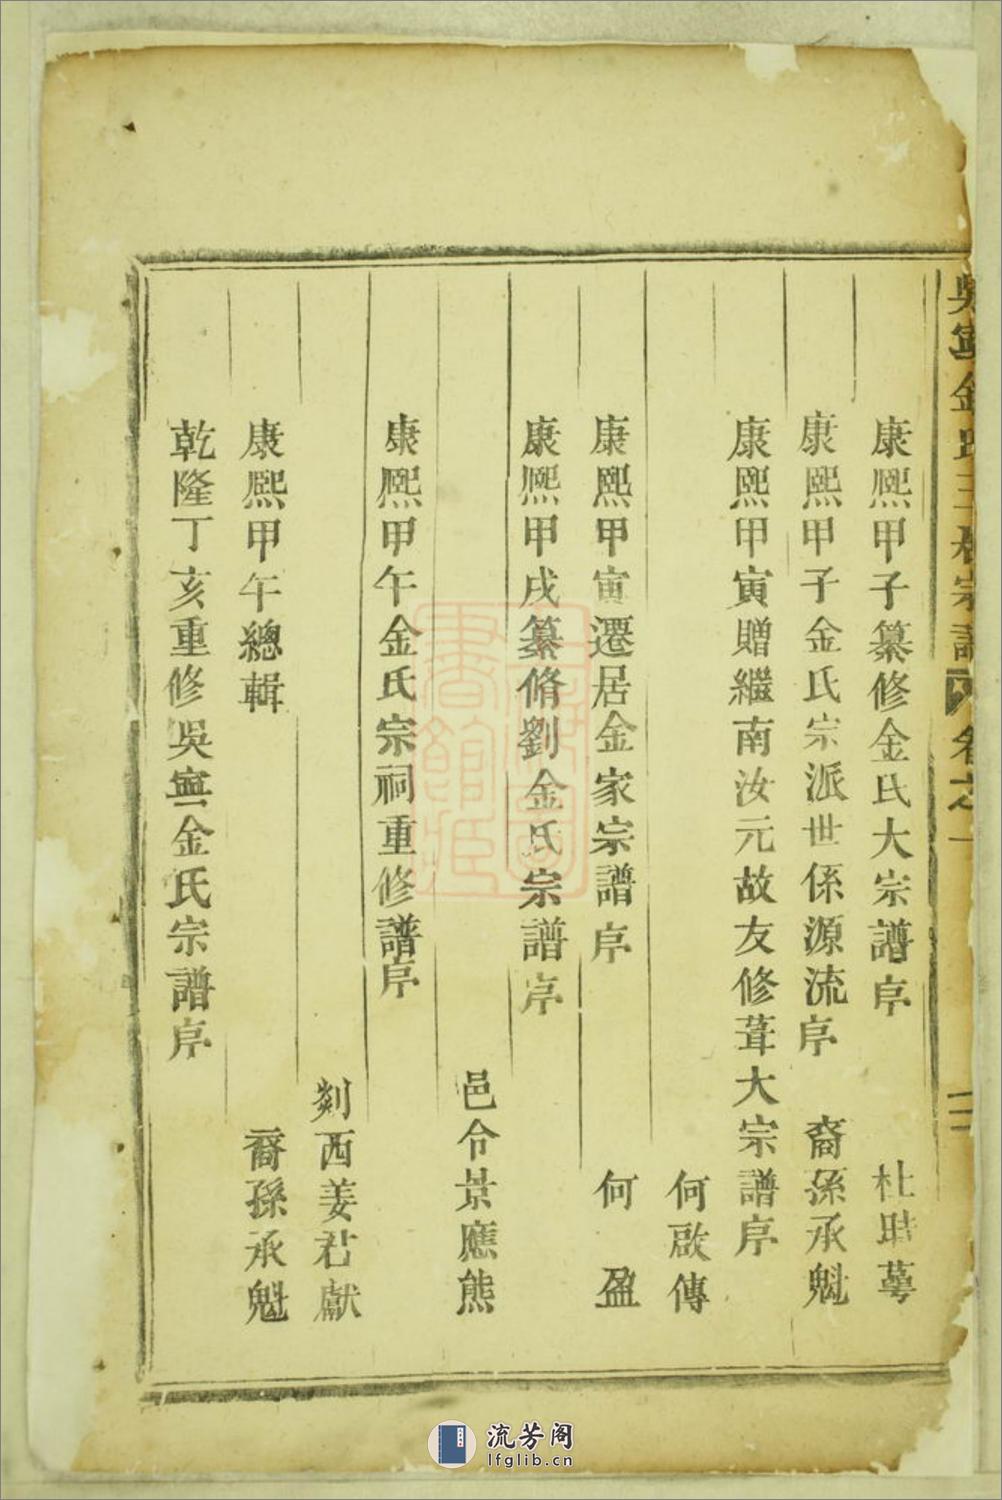 吳寧金氏 宗譜 卷之一 二
康熙甲子纂修金氏大宗譜序 杜時萼
康熙甲子金氏宗派世係源流序 裔孫承魁
康熙甲寅贈繼南汝元故友修葺大宗譜序
何啟傳
康熙甲寅遷居金家宗譜序 何盈
康熙甲戌纂脩劉金氏宗譜序
邑令景應熊
康熙甲午金氏宗祠重修譜序
剡西姜君獻
康熙甲午總輯 裔孫承魁
乾隆丁亥重修吳寧金氏宗譜序
流芳阁
lfglib.cn